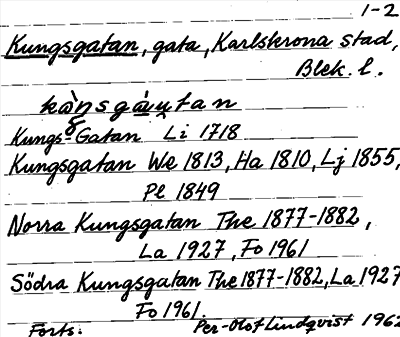 1-2
Kungsgatan, gata, Karlskrona stad,
Blek. l.
Kungs Gatan Li 1718
Kungsgatan We 1813, Ha 1810, Lj 1855,
Pl 1849
Norra Kungsgatan The 1877-1882,
La 1927, Fo 1961
Södra Kungsgatan The 1877-1882, La 1927
Fo 1961.
Forts. Per-Olof Lindqvist 1962